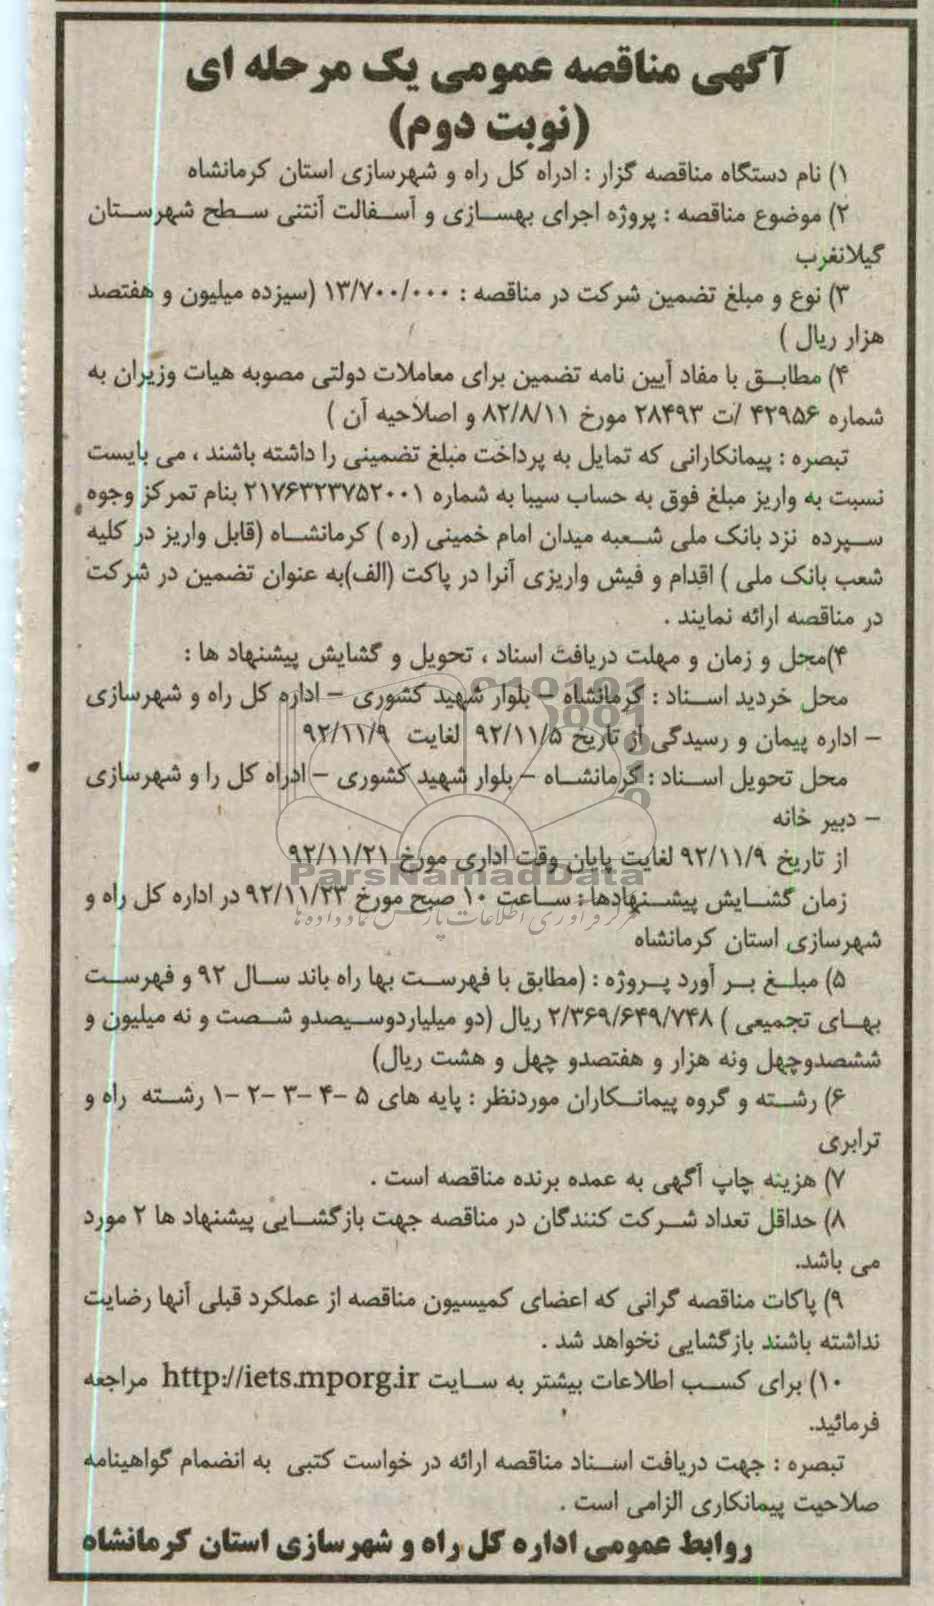 آگهی مناقصه عمومی یک مرحله ای
(نوبت دوم)
۱) نام دستگاه مناقصه گزار : ادراه کل راه و شهرسازی استان کرمانشاه
۲) موضوع مناقصه : پروژه اجرای بهسازی و آسفالت آنتنی سطح شهرستان
گیلانغرب
۳) نوع و مبلغ تضمین شرکت در مناقصه : ۱۳/۷۰۰/۰۰۰ (سیزده میلیون و هفتصد
هزار ریال )
۴) مطابق با مفاد آیین نامه تضمین برای معاملات دولتی مصوبه هیات وزیران به
شماره ۴۲۹۵۶ /ت ۲۸۴۹۳ مورخ ۸۲/۸/۱۱ و اصلاحیه آن )
تبصره : پیمانکارانی که تمایل به پرداخت مبلغ تضمینی را داشته باشند ، می بایست
نسبت به واریز مبلغ فوق به حساب سیبا به شماره ۲۱۷۶۳۲۳۷۵۲۰۰۱ بنام تمرکز وجوه
سپرده نزد بانک ملی شعبه میدان امام خمینی (ره ) کرمانشاه (قابل واریز در کلیه
شعب بانک ملی ) اقدام و فیش واریزی آنرا در پاکت (الف)به عنوان تضمین در شرکت
در مناقصه ارائه نمایند .
۴)محل و زمان و مهلت دریافت اسناد ، تحویل و گشایش پیشنهاد ها :
محل خردید اسناد : کرمانشاه – بلوار شهید کشوری – اداره کل راه و شهرسازی
– اداره پیمان و رسیدگی از تاریخ ۹۲/۱۱/۵ لغایت ۹۲/۱۱/۹
محل تحویل اسناد : کرمانشاه – بلوار شهید کشوری – ادراه کل را و شهرسازی
– دبیر خانه
از تاریخ ۹۲/۱۱/۹ لغایت پایان وقت اداری مورخ ۹۲/۱۱/۲۱
ParsNamadData
زمان گشایش پیشنهادها : ساعت ۱۰ صبح مورخ ۹۲/۱۱/۲۳ در اداره کل راه و
شهرسازی استان کرمانشاه
۵) مبلغ بر آورد پروژه : (مطابق با فهرست بها راه باند سال ۹۲ و فهرست
بهای تجمیعی ) ۲/۳۶۹/۶۴۹/۷۴۸ ریال (دو میلیاردوسیصدو شصت و نه میلیون و
ششصدوچهل ونه هزار و هفتصدو چهل و هشت ریال)
۶) رشته و گروه پیمانکاران موردنظر : پایه های ۵ –۴ –۳ –۲ –۱ رشته راه و
ترابری
۷) هزینه چاپ آگهی به عمده برنده مناقصه است .
۸) حداقل تعداد شرکت کنندگان در مناقصه جهت بازگشایی پیشنهاد ها ۲ مورد
می باشد.
۹) پاکات مناقصه گرانی که اعضای کمیسیون مناقصه از عملکرد قبلی آنها رضایت
نداشته باشند بازگشایی نخواهد شد .
۱۰) برای کسب اطلاعات بیشتر به سایت http://iets.mporg.ir مراجعه
فرمائید.
تبصره : جهت دریافت اسناد مناقصه ارائه در خواست کتبی به انضمام گواهینامه
صلاحیت پیمانکاری الزامی است .
روابط عمومی اداره کل راه و شهرسازی استان کرمانشاه